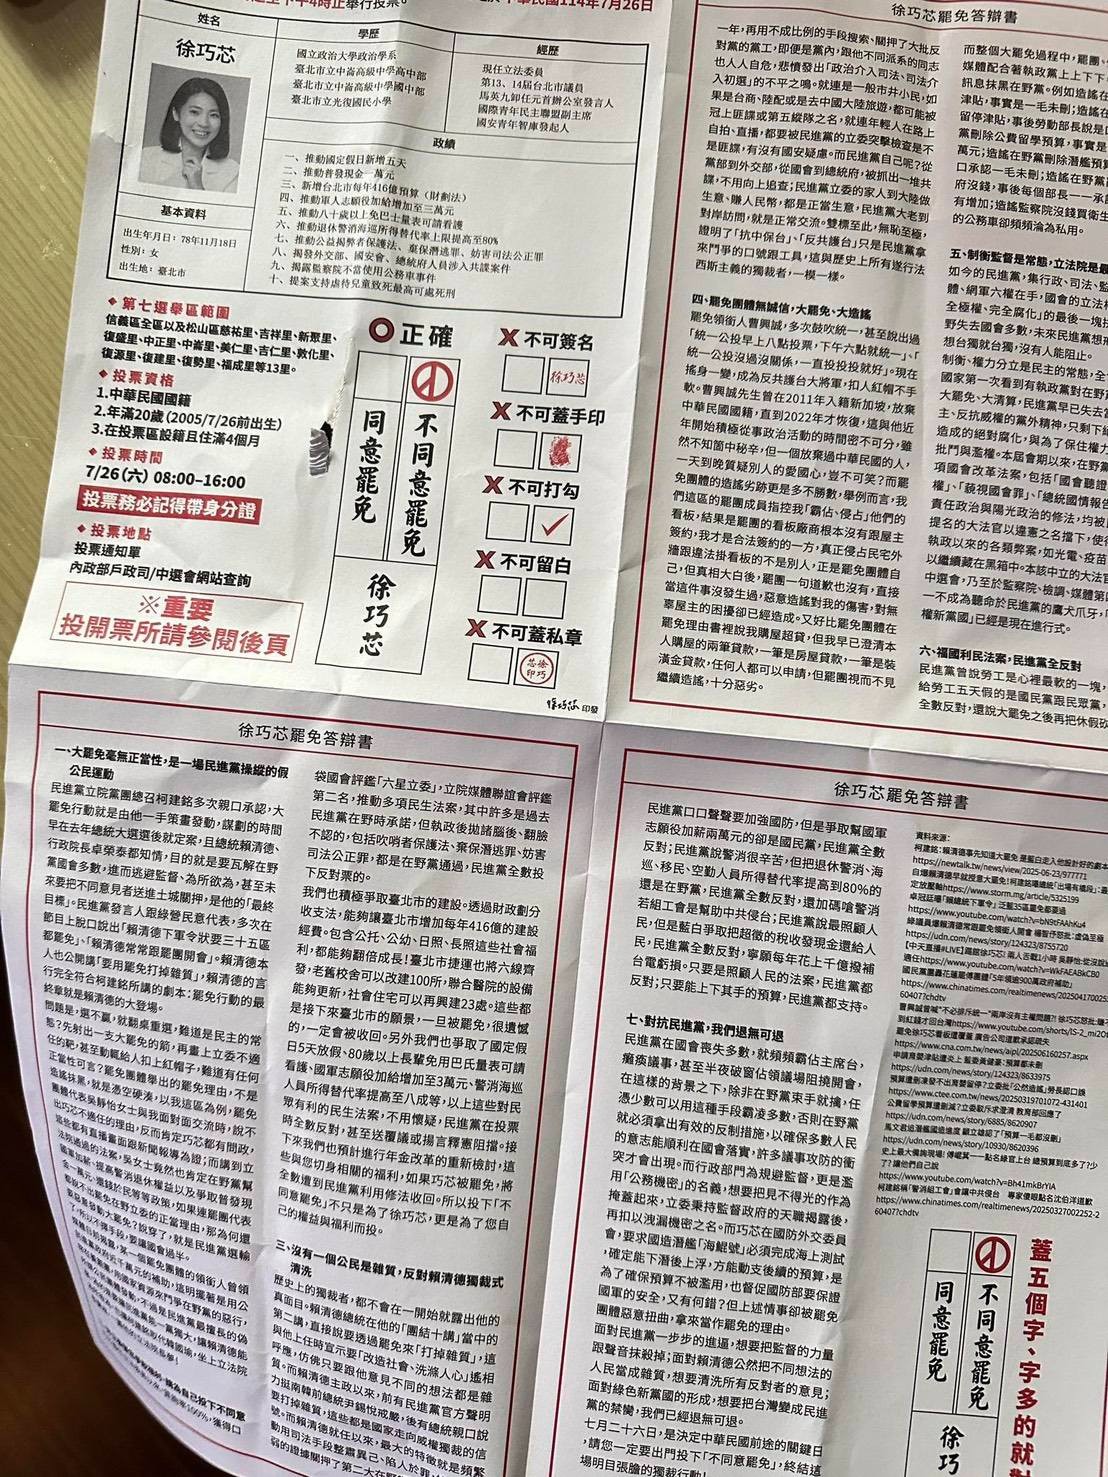 中華民國114年7月26日
舉行投票。
姓名
徐巧芯
學歷
國立政治大學政治學系
臺北市立中崙高級中學高中部
臺北市立中崙高級中學國中部
臺北市立光復國民小學
經歷
現任立法委員
第13、14屆台北市議員
馬英九卸任元首辦公室發言人
國際青年民主聯盟副主席
國安青年智庫發起人
基本資料
出生年月日：78年11月18日
性別：女
出生地：臺北市
政績
一、推動國定假日新增五天
二、推動普發現金一萬元
三、新增台北市每年416億預算（財劃法）
四、推動軍人志願役加給增加至三萬元
五、推動八十歲以上免巴士量表可請看護
六、推動退休警消海巡所得替代率上限提高至80%
七、推動公益揭弊者保護法、棄保潛逃罪、妨害司法公正罪
八、揭發外交部、國安會、總統府人員涉入共諜案件
九、揭露監察院不當使用公務車事件
十、提案支持虐待兒童致死最高可處死刑
第七選舉區範圍
信義區全區以及松山區慈祐里、吉祥里、新聚里、
復盛里、中正里、中崙里、美仁里、吉仁里、敦化里、
復源里、復建里、復勢里、福成里等13里。
投票資格
1.中華民國國籍
2.年滿20歲（2005/7/26前出生）
3.在投票區設籍且住滿4個月
投票時間
7/26(六) 08:00–16:00
投票務必記得帶身分證
投票地點
投票通知單
內政部戶政司/中選會網站查詢
※重要
投開票所請參閱後頁
正確
同意罷免
不同意罷免
徐巧芯
X 不可簽名
徐巧芯
X 不可蓋手印
X 不可打勾
X 不可留白
X 不可蓋私章
徐巧芯印
徐巧芯 印發
徐巧芯罷免答辯書
一年，再用不成比例的手段搜索、關押了大批反
對黨的黨工，即便是黨內，跟他不同派系的同志
也人人自危，悲憤發出「政治介入司法、司法介
入初選」的不平之鳴。就連是一般市井小民，如
果是台商、陸配或是去中國大陸旅遊，都可能被
冠上匪諜或第五縱隊之名，就連年輕人在路上
自拍、直播，都要被民進黨的立委突擊檢查是不
是匪諜，有沒有國安疑慮。而民進黨自己呢？從
黨部到外交部，從國會到總統府，被抓出一堆共
諜，不用向上追查；民進黨立委的家人到大陸做
生意、賺人民幣，都是正常生意，民進黨大老到
對岸訪問，就是正常交流。雙標至此，無恥至極，
證明了「抗中保台」、「反共護台」只是民進黨拿
來鬥爭的口號跟工具，這與歷史上所有遂行法
西斯主義的獨裁者，一模一樣。
四、罷免團體無誠信，大罷免、大造謠
罷免領銜人曹興誠，多次鼓吹統一，甚至說出過
「統一公投早上八點投票，下午六點就統一」、「
統一公投沒過沒關係，一直投投投就好」。現在
搖身一變，成為反共護台大將軍，扣人紅帽不手
軟。曹興誠先生曾在2011年入籍新加坡，放棄
中華民國國籍，直到2022年才恢復，這與他近
年開始積極從事政治活動的時間密不可分，雖
然不知箇中秘辛，但一個放棄過中華民國的人，
一天到晚質疑別人的愛國心，豈不可笑？而罷
免團體的造謠劣跡更是多不勝數，舉例而言，我
們這區的罷團成員指控我「霸佔、侵占」他們的
看板，結果是罷團的看板廠商根本沒有跟屋主
簽約，我才是合法簽約的一方，真正侵占民宅外
牆跟違法掛看板的不是別人，正是罷免團體自
己，但真相大白後，罷團一句道歉也沒有，直接
當這件事沒發生過，惡意造謠對我的傷害，對無
辜屋主的困擾卻已經造成。又好比罷免團體在
罷免理由書裡說我購屋超貸，但我早已澄清本
人購屋的兩筆貸款，一筆是房屋貸款，一筆是裝
潢金貸款，任何人都可以申請，但罷團視而不見
繼續造謠，十分惡劣。
而整個大罷免過程中，罷團、
媒體配合著執政黨上上下下
訊息抹黑在野黨。例如造謠在
津貼，事實是一毛未刪；造謠在
留停津貼，事後勞動部長說是
黨刪除公費留學預算，事實是
萬元；造謠在野黨刪除潛艦預算
口承認一毛未刪；造謠在野黨
府沒錢，事後每個部長一一承
有增加；造謠監察院沒錢買衛生
的公務車卻頻頻淪為私用。
五、制衡監督是常態，立法院是最
如今的民進黨，集行政、司法、監
體、網軍六權在手，國會的立法
全極權、完全腐化」的最後一塊
野失去國會多數，未來民進黨想
想台獨就台獨，沒有人能阻止。
制衡、權力分立是民主的常態，全
國家第一次看到有執政黨對在野
大罷免、大清算，民進黨早已失去
主、反抗威權的黨外精神，只剩下
造成的絕對腐化，與為了保住權力
批鬥與濫權。本屆會期以來，在野
項國會改革法案，包括「國會聽證
權」、「藐視國會罪」、「總統國情報告
責任政治與陽光政治的修法，均被
提名的大法官以違憲之名擋下，使
執政以來的各類弊案，如光電、疫苗
以繼續藏在黑箱中。本該中立的大法官
中選會，乃至於監察院、檢調、媒體第
一不成為聽命於民進黨的鷹犬爪牙，
權新黨國」已經是現在進行式。
六、福國利民法案，民進黨全反對
民進黨曾說勞工是心裡最軟的一塊，
給勞工五天假的是國民黨跟民眾黨，
全數反對，還說大罷免之後再把休假砍
徐巧芯罷免答辯書
一、大罷免毫無正當性，是一場民進黨操縱的假
公民運動
民進黨立院黨團總召柯建銘多次親口承認，大
罷免行動就是由他一手策畫發動，謀劃的時間
早在去年總統大選選後就定案，且總統賴清德、
行政院長卓榮泰都知情，目的就是要瓦解在野
黨國會多數，進而逃避監督、為所欲為，甚至未
來要把不同意見者送進土城關押，是他的「最終
目標」。民進黨發言人跟綠營民意代表，多次在
節目上脫口說出「賴清德下軍令狀要三十五區
都罷免」、「賴清德常常跟罷團開會」。賴清德本
人也公開講「要用罷免打掉雜質」，賴清德的言
行完全符合柯建銘所講的劇本：罷免行動的最
終章就是賴清德的大登場。
問題是，選不贏，就翻桌重選，難道是民主的常
態？先射出一支大罷免的箭，再畫上立委不適
任的靶，甚至動輒給人扣上紅帽子，難道有任何
正當性可言？罷免團體舉出的罷免理由，不是
造謠抹黑，就是憑空硬湊，以我這區為例，罷免
團體代表吳靜怡女士與我面對面交流時，說不
出巧芯不適任的理由，反而肯定巧芯都有問政，
這些都有直播畫面跟新聞報導為證；而講到立
法院通過的法案，吳女士竟然也肯定在野黨幫
國軍加薪、提高警消退休權益以及爭取普發現
金一萬元、還錢於民等等政策，如果連罷團代表
都說不出罷免在野立委的正當理由，那為何還
要惡意發動大罷免？說穿了，就是民進黨選輸
袋國會評鑑「六星立委」，立院媒體聯誼會評鑑
第二名，推動多項民生法案，其中許多是過去
民進黨在野時承諾，但執政後拋諸腦後、翻臉
不認的，包括吹哨者保護法、棄保潛逃罪、妨害
司法公正罪，都是在野黨通過，民進黨全數投
下反對票的。
我們也積極爭取臺北市的建設。透過財政劃分
收支法，能夠讓臺北市增加每年416億的建設
經費。包含公托、公幼、日照、長照這些社會福
利，都能夠翻倍成長！臺北市捷運也將六線齊
發，老舊校舍可以改建100所，聯合醫院的設備
能夠更新，社會住宅可以再興建23處。這些都
是接下來臺北市的願景，一旦被罷免，很遺憾
的，一定會被收回。另外我們也爭取了國定假
日5天放假、80歲以上長輩免用巴氏量表可請
看護、國軍志願役加給增加至3萬元、警消海巡
人員所得替代率提高至八成等，以上這些對民
眾有利的民生法案，不用懷疑，民進黨在投票
時全數反對，甚至送覆議或揚言釋憲阻擋。接
下來我們也預計進行年金改革的重新檢討，這
些與您切身相關的福利，如果巧芯被罷免，將
全數遭到民進黨利用修法收回。所以投下「不
同意罷免」不只是為了徐巧芯，更是為了您自
己的權益與福利而投。
三、沒有一個公民是雜質，反對賴清德獨裁式
清洗
歷史上的獨裁者，都不會在一開始就露出他的
真面目。賴清德總統在他的「團結十講」當中的
第二講，直接說要透過罷免來「打掉雜質」，這
與他上任時宣示要「改造社會、洗滌人心」遙相
呼應，仿佛只要跟他意見不同的想法都是雜
質。而賴清德主政以來，前有民進黨官方聲明
力挺南韓前總統尹錫悅戒嚴，後有總統親口說
要打掉雜質，這些都是國家走向威權獨裁的信
號。而賴清德就任以來，最大的特徵就是頻繁
動用司法手段整肅異己、陷人於罪
弱的證據關押了第二大在野
徐巧芯罷免答辯書
民進黨口口聲聲要加強國防，但是爭取幫國軍
志願役加薪兩萬元的卻是國民黨，民進黨全數
反對；民進黨說警消很辛苦，但把退休警消、海
巡、移民、空勤人員所得替代率提高到80%的
還是在野黨，民進黨全數反對，還加碼嗆警消
若組工會是幫助中共侵台；民進黨說最照顧人
民，但是藍白爭取把超徵的稅收發現金還給人
民，民進黨全數反對，寧願每年花上千億撥補
台電虧損。只要是照顧人民的法案，民進黨都
反對；只要能上下其手的預算，民進黨都支持。
七、對抗民進黨，我們退無可退
民進黨在國會喪失多數，就頻頻霸佔主席台，
癱瘓議事，甚至半夜破窗佔領議場阻撓開會，
在這樣的背景之下，除非在野黨束手就擒，任
憑少數可以用這種手段霸凌多數，否則在野黨
就必須拿出有效的反制措施，以確保多數人民
的意志能順利在國會落實，許多議事攻防的衝
突才會出現。而行政部門為規避監督，更是濫
用「公務機密」的名義，想要把見不得光的作為
掩蓋起來，立委秉持監督政府的天職揭露後，
再扣以洩漏機密之名。而巧芯在國防外交委員
會，要求國造潛艦「海鯤號」必須完成海上測試
，確定能下潛後上浮，方能動支後續的預算，是
為了確保預算不被濫用，也督促國防部要保證
國軍的安全，又有何錯？但上述情事卻被罷免
團體惡意扭曲，拿來當作罷免的理由。
面對民進黨一步步的進逼，想要把監督的力量
跟聲音抹殺掉；面對賴清德公然把不同想法的
人民當成雜質，想要清洗所有反對者的意見；
面對綠色新黨國的形成，想要把台灣變成民進
黨的禁臠，我們已經退無可退。
七月二十六日，是決定中華民國前途的關鍵日
，請您一定要出門投下「不同意罷免」，終結這
場明目張膽的獨裁行動！
資料來源：
https://newtalk.tw/news/view/2025-06-23/977771
https://www.storm.mg/article/5325199
https://www.youtube.com/watch?v=bN9tFAAhKuI
https://udn.com/news/story/124323/8755720
https://www.youtube.com/watch?v=WkFAEABkCB0
https://www.cna.com.tw/news/aipl/202506160257.aspx
https://udn.com/news/story/124323/8633975
https://www.ctee.com.tw/news/20250319701072-431401
https://udn.com/news/story/6885/8620907
https://udn.com/news/story/10930/8620396
https://www.youtube.com/watch?v=Bh41mkBrYIA
https://www.chinatimes.com/realtimenews/20250327002252-2
60407?chdtv
同意罷免
不同意罷免
徐巧
蓋五個字、字多的就